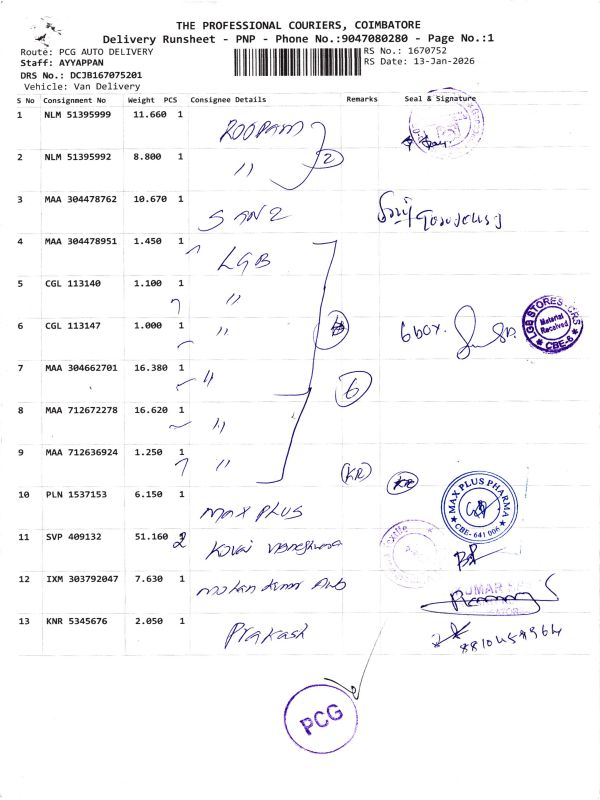 THE PROFESSIONAL COURIERS, COIMBATORE
Delivery Runsheet - PNP - Phone No.:9047080280 - Page No.:1
Route: PCG AUTO DELIVERY RS No.: 1670752
Staff: AYYAPPAN RS Date: 13-Jan-2026
DRS No.: DCJB167075201
Vehicle: Van Delivery
S No Consignment No Weight PCS Consignee Details Remarks Seal & Signature
1 NLM 51395999 11.660 1 ROOPAM
2 NLM 51395992 8.800 1 〃 2
3 MAA 304478762 10.670 1
4 MAA 304478951 1.450 1 LGB
5 CGL 113140 1.100 1 〃
6 CGL 113147 1.000 1 〃 6 box.
LGB STORES-CRS Material Received CBE-6
7 MAA 304662701 16.380 1 〃 6
8 MAA 712672278 16.620 1 〃
9 MAA 712636924 1.250 1 〃 (KR)
10 PLN 1537153 6.150 1 MAX PLUS
MAX PLUS PHARMA CBE-641 006
11 SVP 409132 51.160 2 Kovai
12 IXM 303792047 7.630 1 Mohan Kumar
13 KNR 5345676 2.050 1 Prakash
PCG